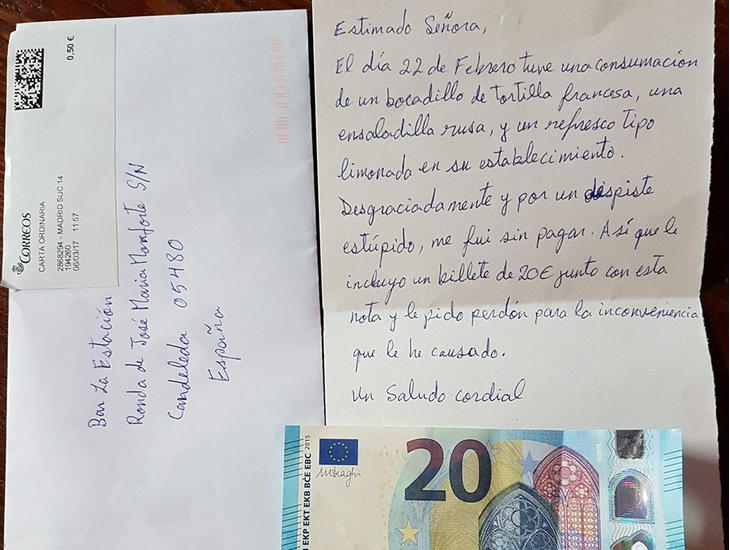 CORREOS
CARTA ORDINARIA
2868294 - MADRID SUC 14
194260
06/03/17 11:57
0,50 €
Bar La Estación
Ronda de José Maria Monforte S/N
Candeleda 05480
España
Estimado Señora,
El día 22 de Febrero tuve una consumación
de un bocadillo de tortilla francesa, una
ensaladilla rusa, y un refresco tipo
limonada en su establecimiento.
Desgraciadamente y por un despiste
estúpido, me fui sin pagar. Así que le
incluyo un billete de 20€ junto con esta
nota y le pido perdón para la inconveniencia
que le he causado.
Un Saludo cordial
EKP EKT EKB BCE EBC 2015
20